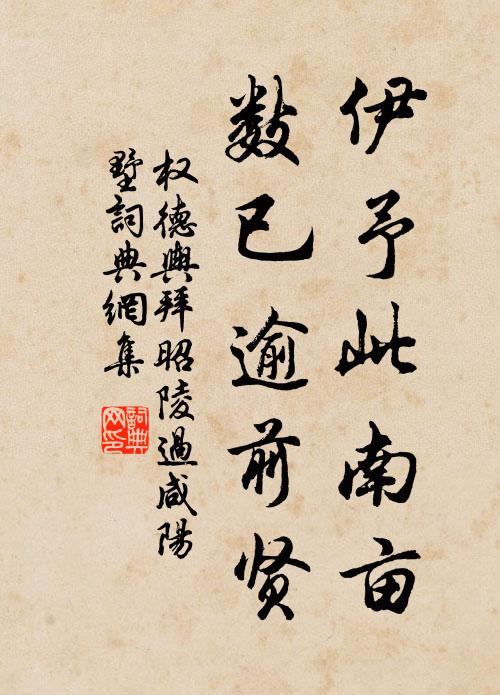 伊予此南亩
数已逾前贤
权德舆拜昭陵过咸陽
墅詞典網集
詞典网印